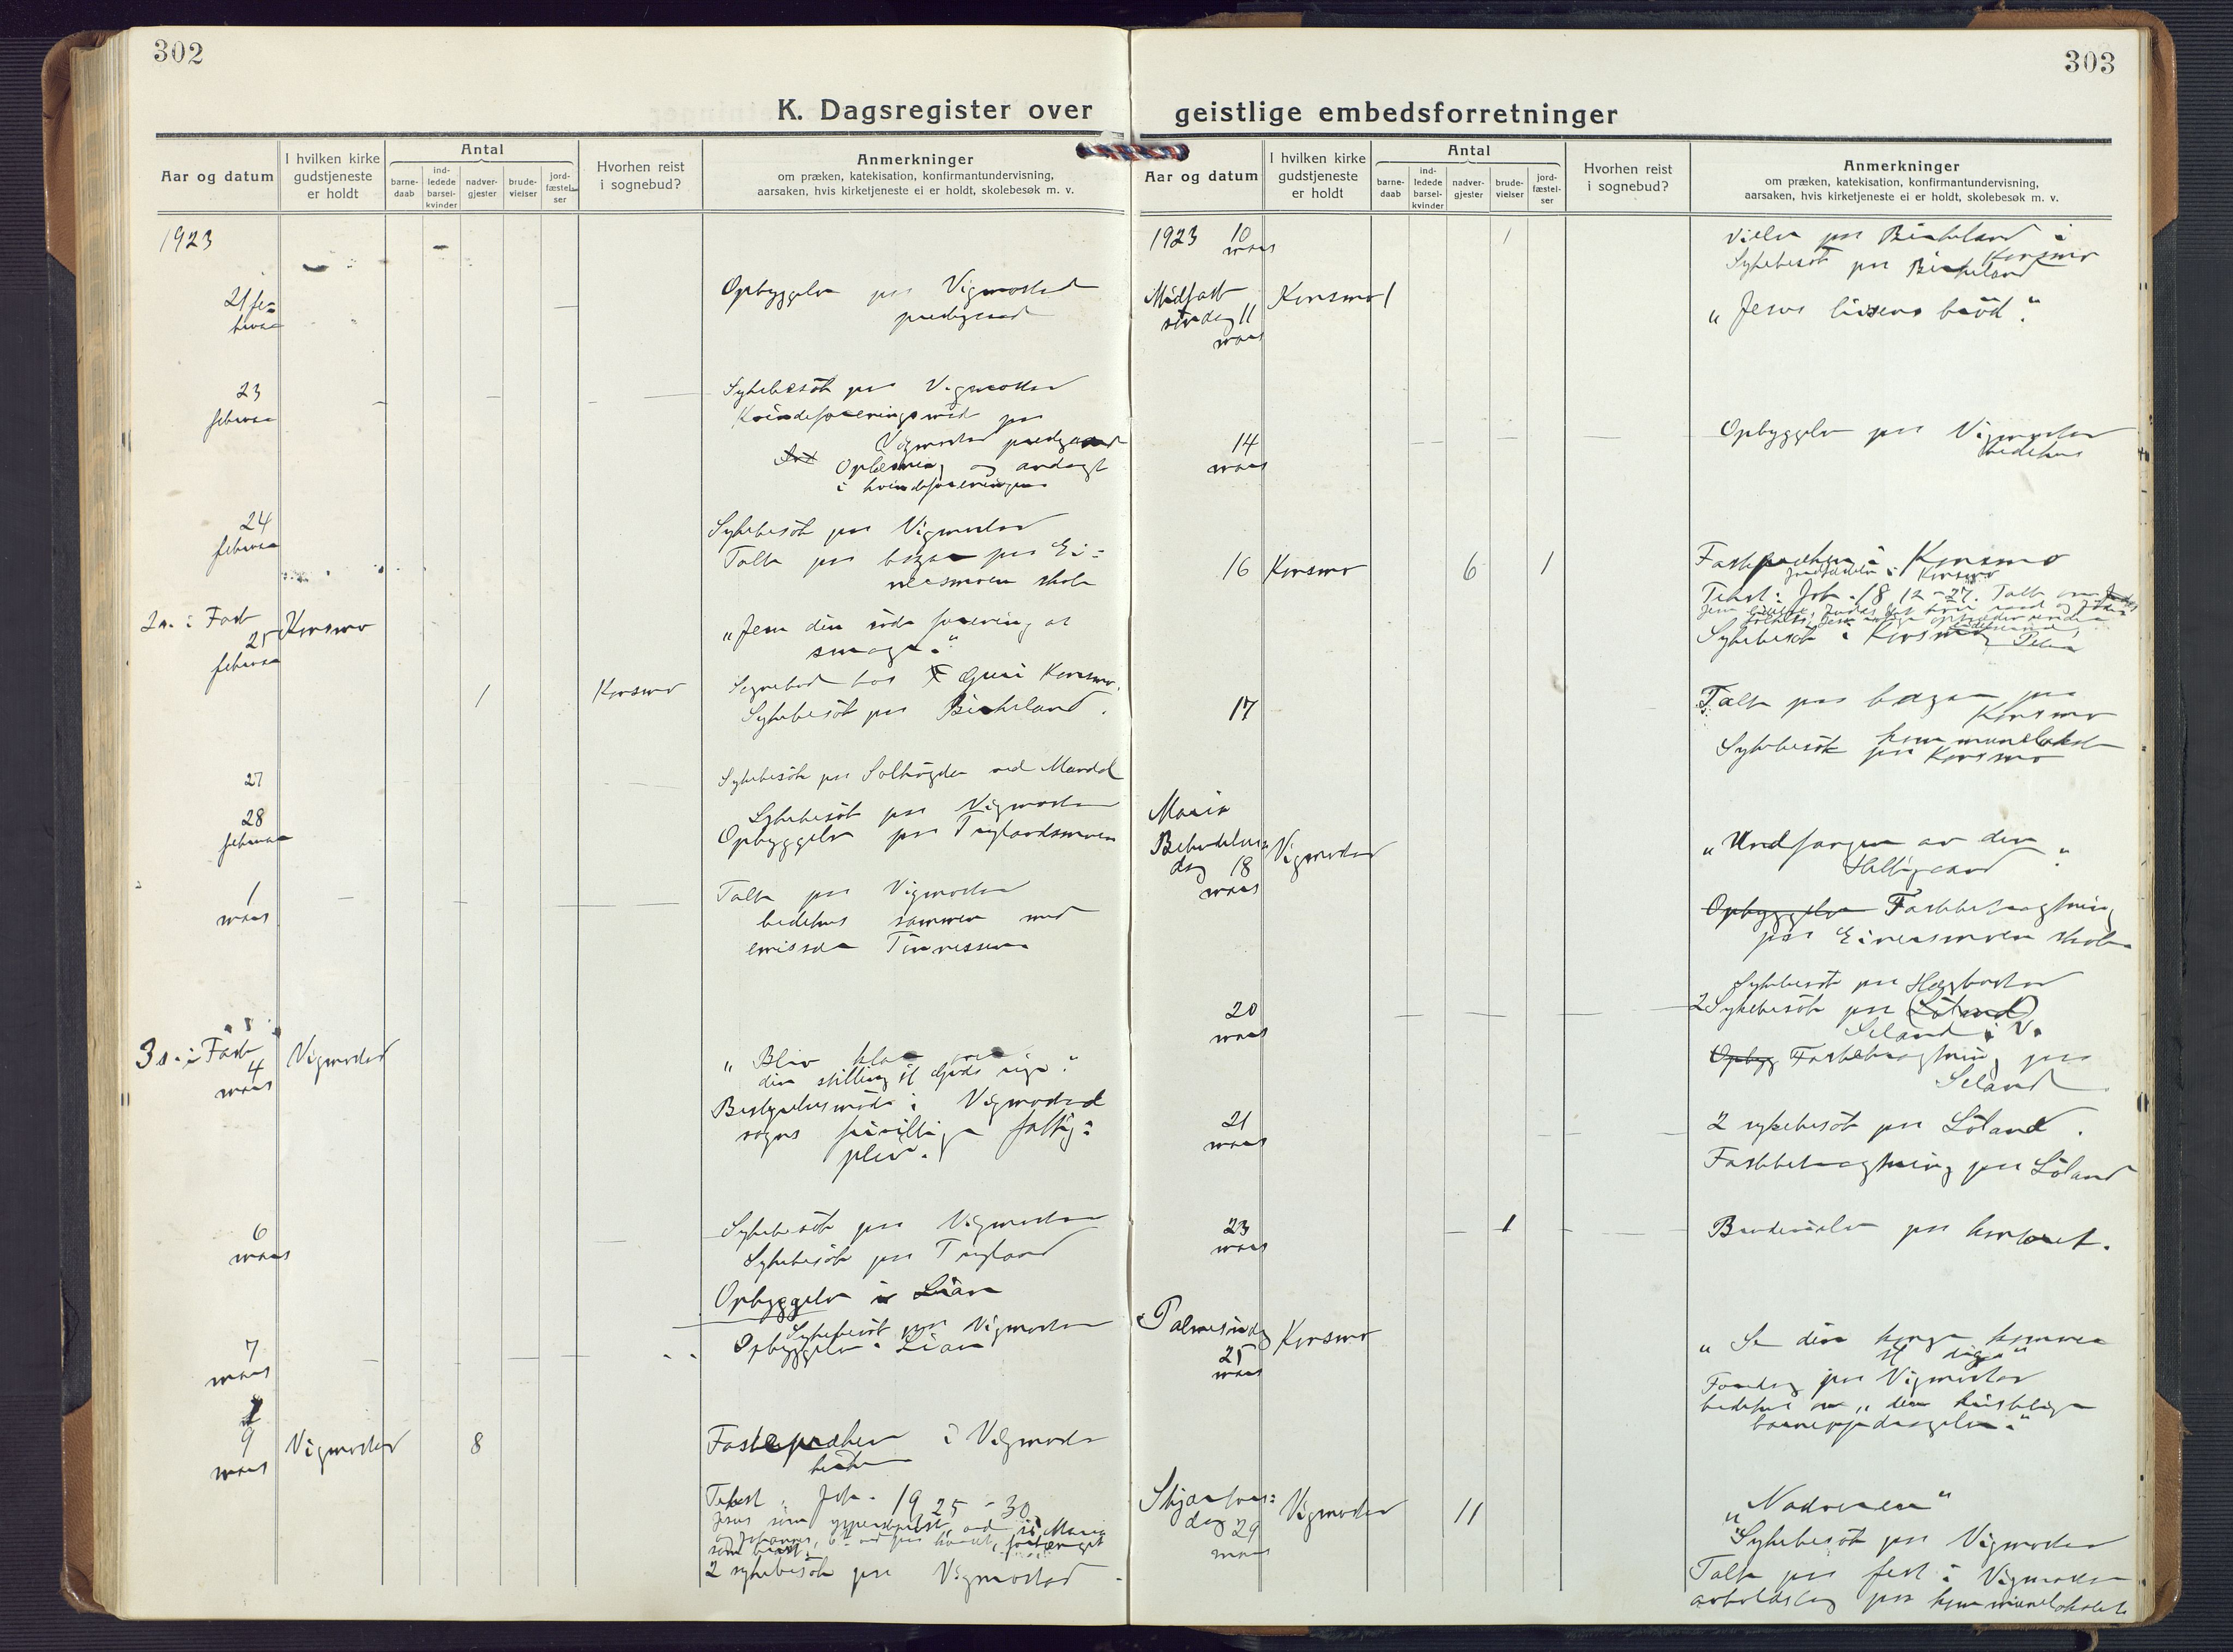 302
K. Dagsregister over
Aar og datum
I hvilken kirke
gudstjeneste
er holdt
Antal
barne-
daab
ind-
ledede
barsel-
kvinder
nadver-
gjester
brude-
vielser
jord-
fæstel-
ser
Hvorhen reist
i sognebud?
Anmerkninger
om præken, katekisation, konfirmantundervisning,
aarsaken, hvis kirketjeneste ei er holdt, skolebesøk m. v.
1923
21 fe=
bruar
Opbyggelse paa Vigmostad
prestegaard
23
februar
Sykebesök paa Vigmostad
Kvindeforeningsmöde paa
Vigmostad prestegaard
Oplæsning og andagt
i kvindeforeningen
24
februar
Sykebesök paa Vigmostad
Talte paa basar paa Ei=
nersmoen skole
2 s. i Fast
25
februar
Konsmo
"Jesu din söde forening at
smage."
1
Konsmo
Sognebud hos Guri Konsmo.
Sykebesök paa Birkeland.
27
Sykebesök paa Solhögda ved Mandal
28
februar
Sykebesök paa Vigmostad
Opbyggelse paa Tryglandsmoen
1
mars
Talte paa Vigmostad
bedehus sammen med
emissær Tönnessen
3 s. i Fast
4
mars
Vigmostad
"Bliv klar over
din stilling til Guds rige."
Bestyrelsesmöde i Vigmostad
sogns frivillige fattig=
pleie.
6
mars
Sykebesök paa Vigmostad
Sykebesök paa Trygland
Opbyggelse i Lian
7
mars
Sykebesök paa Vigmostad
Opbyggelse i Lian
9
mars
Vigmostad
8
Fastepræken i Vigmostad
kirke
Tekst: Joh. 19 25-30
2 sykebesök paa Vigmostad
303
geistlige embedsforretninger
Aar og datum
I hvilken kirke
gudstjeneste
er holdt
Antal
barne-
daab
ind-
ledede
barsel-
kvinder
nadver-
gjester
brude-
vielser
jord-
fæstel-
ser
Hvorhen reist
i sognebud?
Anmerkninger
om præken, katekisation, konfirmantundervisning,
aarsaken, hvis kirketjeneste ei er holdt, skolebesøk m. v.
1923 10
mars
1
Vielse paa Birkeland i
Konsmo
Sykebesök paa Birkeland
Midfaste
söndag 11
mars
Konsmo
1
"Jesus livsens bröd."
14
mars
Opbyggelse paa Vigmostad
bedehus
16
Konsmo
6
1
Fastepræken i Konsmo
Jordfæstelse i Konsmo
Tekst: Joh. 18, 12-27.
Sykebesök i Konsmo
17
Talte paa basar paa
Konsmo
kommunelokale
Sykebesök paa Konsmo
Maria
Bebudelses=
dag 18
mars
Vigmostad
"Undfangen av den
Helligaand"
Opbyggelse Fastebetragtning
paa Einersmoen skole
20
mars
Sykebesök paa Hægbostad
2 Sykebesök paa (Löland)
Seland i V.
Opbyg Fastebetragtning paa
Seland
21
mars
2 sykebesök paa Löland.
Fastebetragtning paa Löland
23
mars
1
Brudevielse paa kontoret.
Palmesöndag
25
mars
Konsmo
"Se din konge kommer
til dig"
Foredrag paa Vigmostad
bedehus om "den kristelige
barneopdragelse."
Skjærtors=
dag 29
mars
Vigmostad
11
"Nadveren"
Sykebesök paa Vigmostad
Talte paa fest i Vigmostad
avholdslag paa kommunelokalet